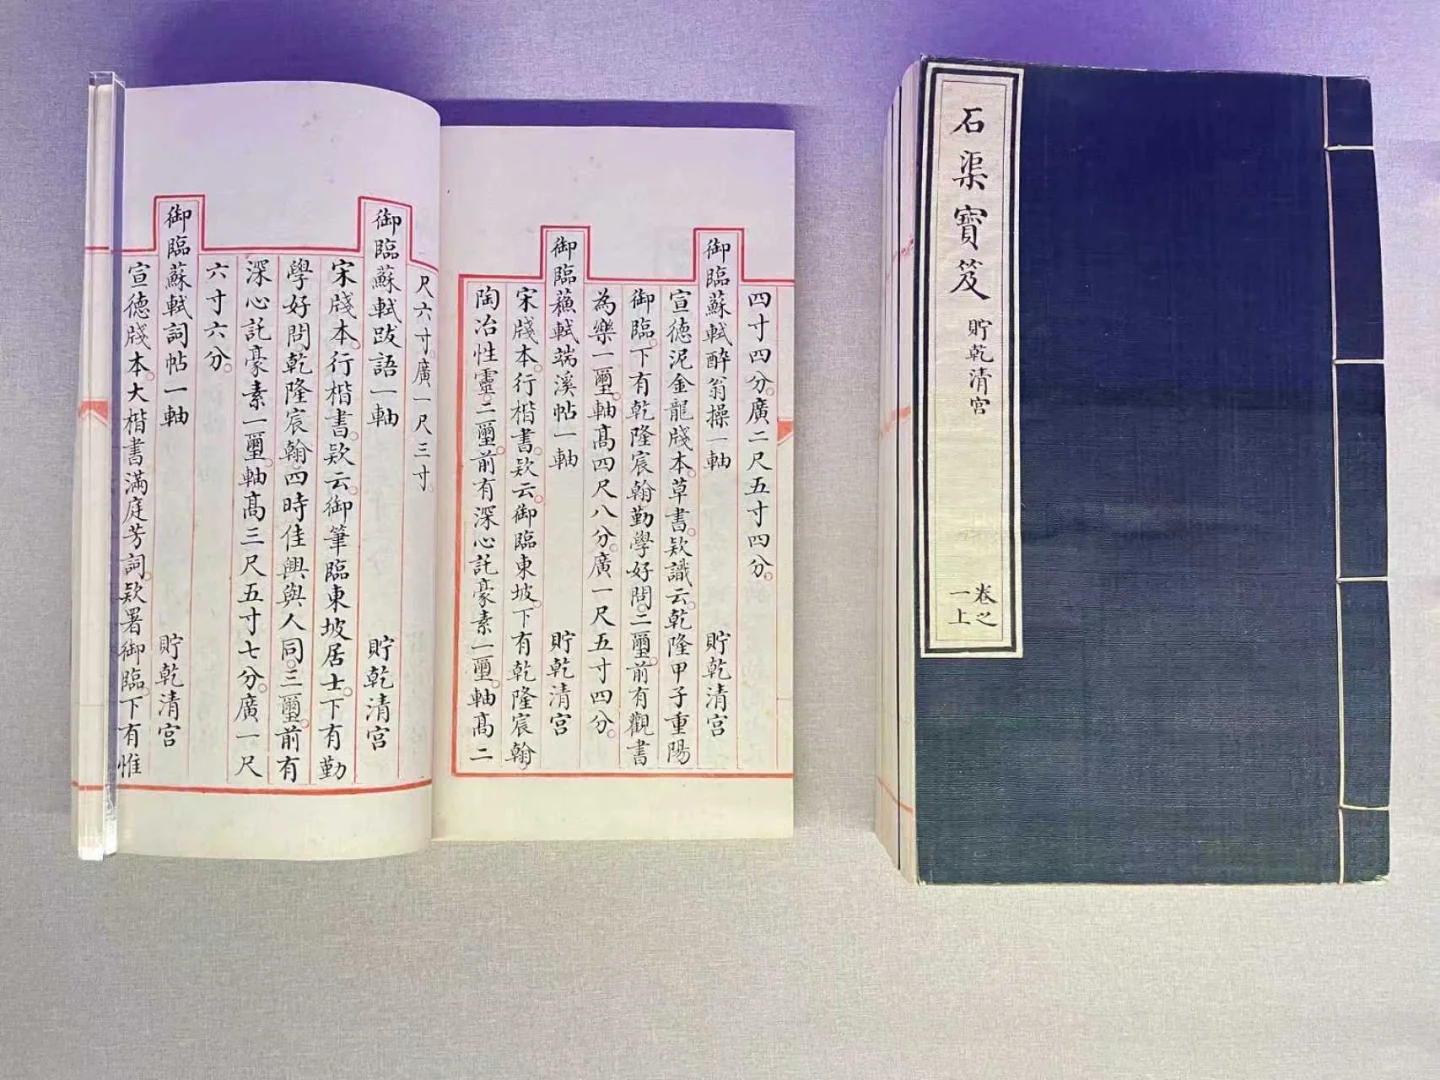 四寸四分。廣二尺五寸四分。
御臨蘇軾醉翁操一軸 貯乾清宮
宣德泥金龍牋本。草書。欵識云。乾隆甲子重陽
御臨。下有乾隆宸翰勤學好問。二璽。前有觀書
為樂一璽。軸高四尺八分。廣一尺五寸四分。
御臨蘓軾端溪帖一軸 貯乾清宮
宋牋本。行楷書。欵云。御臨東坡。下有乾隆宸翰
陶冶性靈。二璽。前有深心託豪素一璽。軸髙二
尺六寸。廣一尺三寸。
御臨蘇軾跋語一軸 貯乾清宮
宋牋本。行楷書。欵云。御筆臨東坡居士。下有勤
學好問乾隆宸翰四時佳興與人同。三璽。前有
深心託豪素一璽。軸髙三尺五寸七分。廣一尺
六寸六分。
御臨蘇軾詞帖一軸 貯乾清宮
宣德牋本。大楷書滿庭芳詞。欵署御臨。下有惟
石渠寶笈 貯乾清宮
卷之
一上